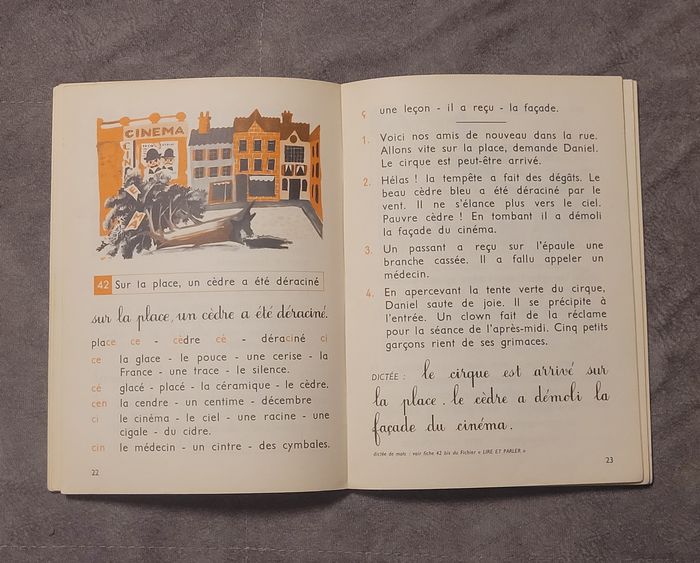 CINEMA
CINE
42 Sur la place, un cèdre a été déraciné
sur la place, un cèdre a été déraciné.
place ce - cèdre cè - déraciné ci
ce la glace - le pouce - une cerise - la
France - une trace - le silence.
cé glacé - placé - la céramique - le cèdre.
cen la cendre - un centime - décembre
ci le cinéma - le ciel - une racine - une
cigale - du cidre.
cin le médecin - un cintre - des cymbales.
22
ç une leçon - il a reçu - la façade.
1. Voici nos amis de nouveau dans la rue.
Allons vite sur la place, demande Daniel.
Le cirque est peut-être arrivé.
2. Hélas ! la tempête a fait des dégâts. Le
beau cèdre bleu a été déraciné par le
vent. Il ne s'élance plus vers le ciel.
Pauvre cèdre ! En tombant il a démoli
la façade du cinéma.
3. Un passant a reçu sur l'épaule une
branche cassée. Il a fallu appeler un
médecin.
4. En apercevant la tente verte du cirque,
Daniel saute de joie. Il se précipite à
l'entrée. Un clown fait de la réclame
pour la séance de l'après-midi. Cinq petits
garçons rient de ses grimaces.
DICTÉE : le cirque est arrivé sur
la place. le cèdre a démoli la
façade du cinéma.
dictée de mots : voir fiche 42 bis du Fichier « LIRE ET PARLER »
23